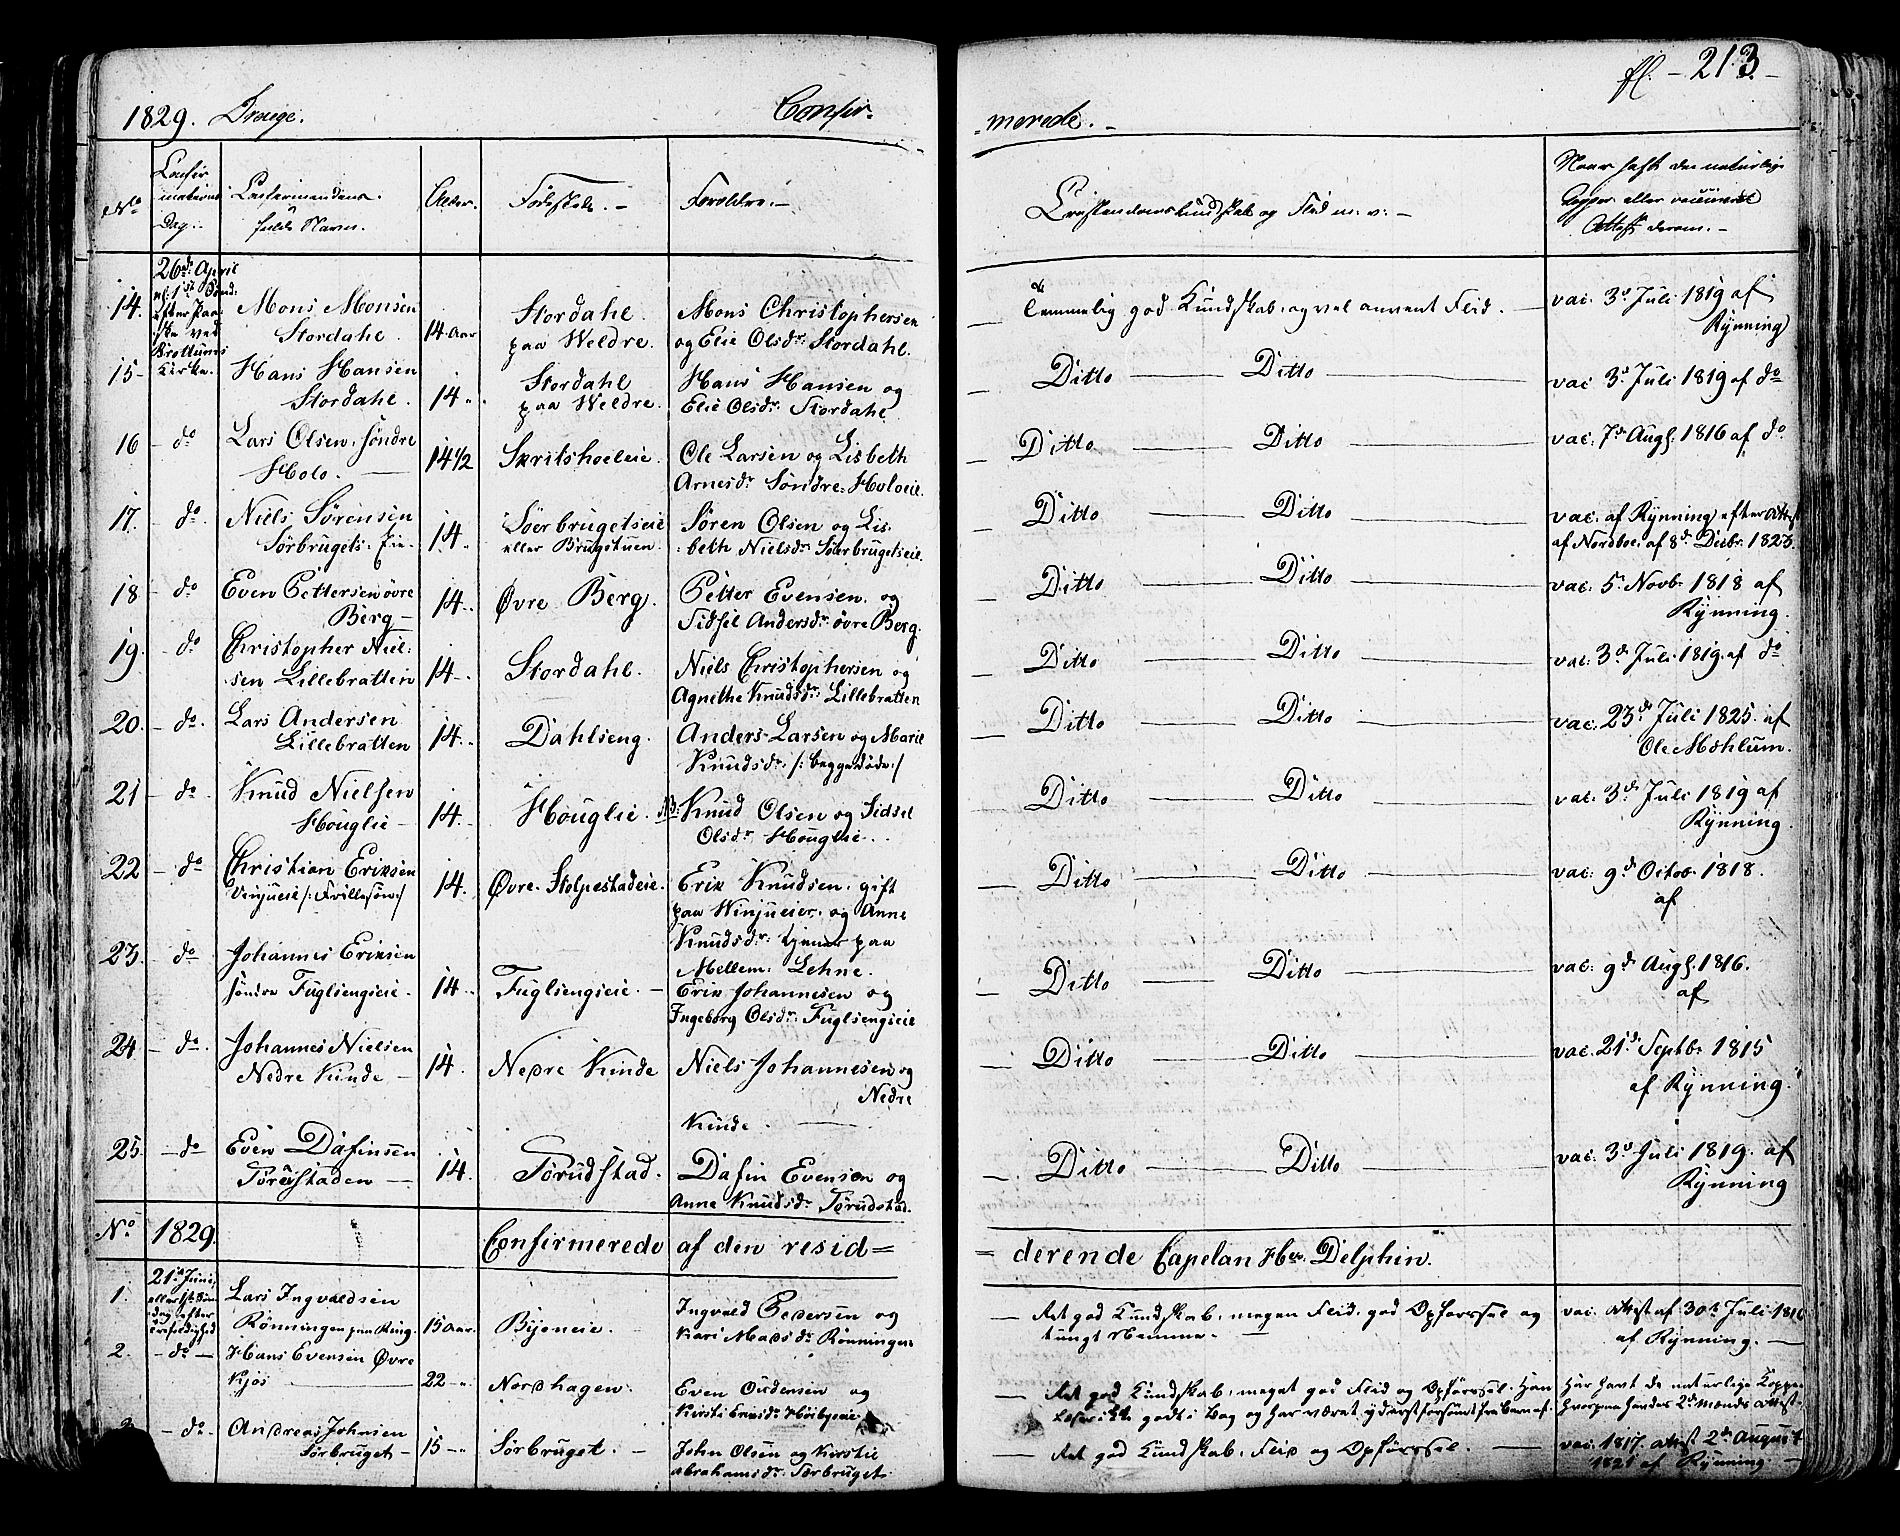 fl. - 213 -
1829. Drenge. Confir- -merede.
No Confirmations Dag. Confirmandens fulde Navn. Alder. Fødested. Forældre. Christendomskundskab og Flid m. v. Naar haft de naturlige Kopper eller vaccineret Attest derom.
14. 26de April
nf. 1ste Sønd:
efter Paa-
ske ved
Brøttums
Kirke.
Mons Monsen
Stordahl.
14 Aar
Stordahl
paa Weldre.
Mons Christophersen
og Elie Olsdr Stordahl.
Temmelig god Kundskab, og vel anvent Flid.
vac. 3d Juli 1819 af
Rynning
15- Hans Hansen
Stordahl.
14
Stordahl
paa Weldre.
Hans Hansen og
Elie Olsdr Stordahl
Ditto Ditto
vac. 3d Juli 1819 af do
16 - do Lars Olsen, søndre
Holo.
14 1/2
Skritsholeie.
Ole Larsen og Lisbeth
Arnesdr Søndre-Holoeie.
Ditto Ditto
vac: 7d Augs. 1816 af do
17. - do. Niels Sørensen
Sørbrugets. Eie-
14.
Søerbrugetseie
eller Brugstuen.
Søren Olsen og Lis-
beth Nielsdr Søerbrugetseie.
Ditto Ditto
vac. af Rynning efter Attest
af Nordboe af 8d Decbr. 1823.
18 - do Even Pettersen øvre
Berg -
14.
Øvre Berg.
Petter Evensen og
Sidsel Andersdr øvre Berg.
Ditto Ditto
vac. 5. Novb. 1818 af
Rynning.
19. - do Christopher Niel-
sen Lillebratten
14-
Stordahl.
Niels Christophersen og
Agnethe Knudsdr Lillebratten
Ditto Ditto
vac: 3d Juli 1819. af do
20. - do. Lars Andersen
Lillebratten
14.
Dahlseng.
Anders Larsen og Marie
Knudsdr /: begge døde :/
Ditto Ditto
vac. 23de Juli 1825. af
Ole Mæhlum.
21 - do Knud Nielsen
Houglie -
14.
Houglie.
Knud Olsen og Sidsel
Olsdr Houglie.
Ditto Ditto
vac. 3de Juli 1819 af
Rynning.
22 - do Christian Eriksen
Vinjueie /: Frillesøn :/
14.
Øvre. Stolpestadeie.
Erik Knudsen, gift
paa Winjueier, og Anne
Knudsdr tjener paa
Mellem. Lehne.
Ditto Ditto
vac: 9d Octob. 1818.
af
23. - do Johannes Eriksen
søndre Fuglsengseie.
14.
Fuglsengseie. -
Erik Johannesen og
Ingeborg Olsdr Fuglsengseie
Ditto Ditto
vac: 9de Augs. 1816.
af
24. - do. Johannes Nielsen
Nedre Kinde -
14.
Nedre Kinde
Niels Johannesen og
Nedre
Kinde.
Ditto Ditto
vac. 21de Septbr 1815
af Rynning.
25. - do Even Dafinsen
Torudstaden -
14.
Torudstad.
Dafin Evensen og
Anne Knudsdr Torudstad.
Ditto Ditto
vac. 3d Juli 1819. af
Rynning
No 1829. Confirmerede af den resid=
=derende Capelan Hr. Delphin.
1. 21d Juni,
eller 1ste Søn-
dag efter
Trefoldighed
Lars Ingvaldsen
Rønningen paa Ring-
15 Aar.
Bjøneie.
Ingvald Pedersen og
Kari Madsdr Rønningen
Ret god Kundskab, megen Flid, god Opførssel og
tungt Nemme. -
vac. attest af 30te Juli 1816
af Rynning. -
2. - do - Hans Evensen Øvre
Kjøs
22 -
Nordhagen.
Even Christensen og
Kirsti
Ret god Kundskab, meget god Flid og Opførssel. Han
læser ikke godt i Bog og har været yderst forsømt fra Barn af.
Har havt de naturlige Kopper
hvorpaa haves 2de Mænds Attest.
- do- Andreas Johnsen
Sørbruget -
15 -
Sørbruget. -
John Olsen og Kirstie
Abrahamsdr Sørbruget.
Ret god Kundskab, Flid og Opførssel.
vac. 1817. attest 2de August
1821 af Rynning. -